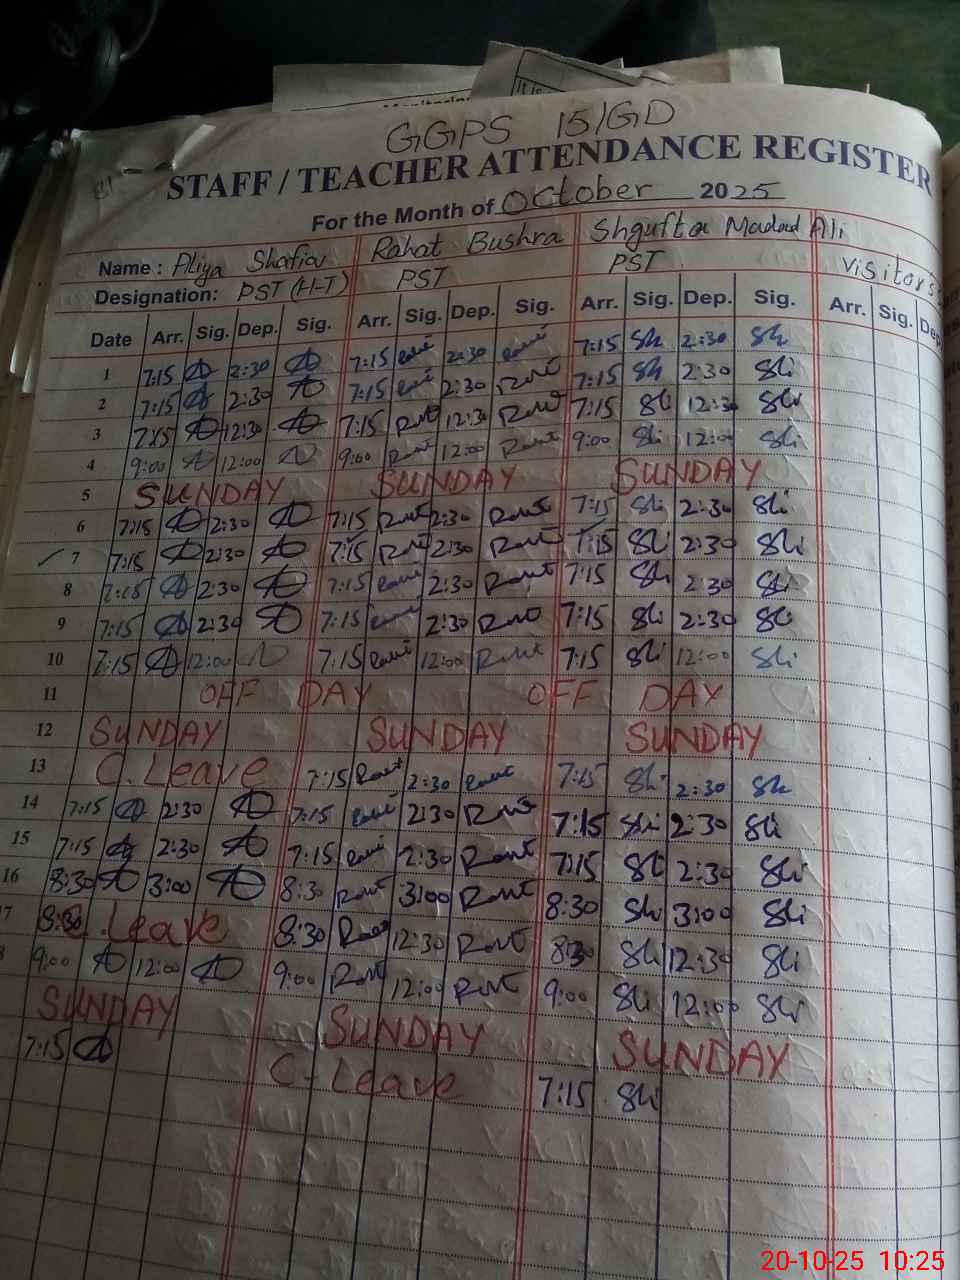 It is
GGPS 15/GD
STAFF / TEACHER ATTENDANCE REGISTER
For the Month of October 2025
Name : Aliya Shafia Rahat Bushra Shgufta Madad Ali
Designation: PST (H-T) PST PST Visitors
Date Arr. Sig. Dep. Sig. Arr. Sig. Dep. Sig. Arr. Sig. Dep. Sig. Arr. Sig. Dep
1 7:15 2:30 7:15 2:30 7:15 Sh 2:30 Sh
2 7:15 2:30 7:15 2:30 7:15 Sh 2:30 Shi
3 7:15 12:30 7:15 12:30 7:15 Shi 12:30 Shi
4 9:00 12:00 9:00 12:00 9:00 Shi 12:00 Shi
5 SUNDAY SUNDAY SUNDAY
6 7:15 2:30 7:15 2:30 7:15 Shi 2:30 Shi
7 7:15 2:30 7:15 2:30 7:15 Shi 2:30 Shi
8 7:15 2:30 7:15 2:30 7:15 Shi 2:30 Shi
9 7:15 2:30 7:15 2:30 7:15 Shi 2:30 Shi
10 7:15 12:00 7:15 12:00 7:15 Shi 12:00 Shi
11 OFF DAY OFF DAY
12 SUNDAY SUNDAY SUNDAY
13 C. Leave 7:15 2:30 7:15 Shi 2:30 Sh
14 7:15 2:30 7:15 2:30 7:15 Shi 2:30 Shi
15 7:15 2:30 7:15 2:30 7:15 Shi 2:30 Shi
16 8:30 3:00 8:30 3:00 8:30 Shi 3:00 Shi
17 8:30 C. Leave 8:30 12:30 830 Shi 12:30 Shi
8 9:00 12:00 9:00 12:00 9:00 Shi 12:00 Shi
SUNDAY SUNDAY SUNDAY
7:15 C. Leave 7:15 Shi
20-10-25 10:25